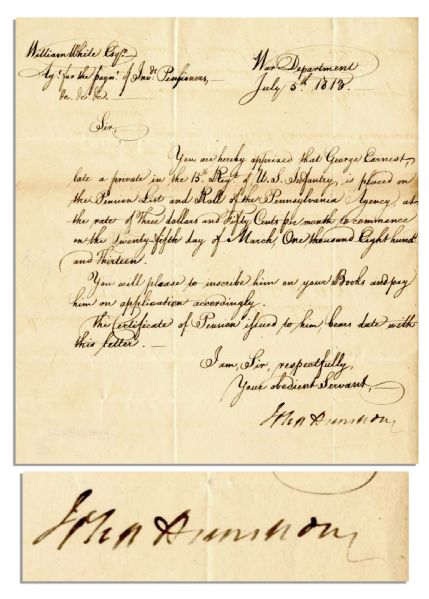 William White Esqr.
Agt. for the paymt. of Invd. Pensioners,
&c. &c. &c.
War Department
July 5th. 1813.
Sir,
You are hereby apprized that George Earnest,
late a private in the 15th. Regt. of U.S. Infantry, is placed on
the Pension List and Roll of the Pennsylvania Agency, at
the rate of Three dollars and Fifty Cents per month to commence
on the twenty-fifth day of March, One thousand Eight hund
and Thirteen.
You will please to inscribe him on your Books and pay
him on application accordingly.
The certificate of Pension issued to him, bears date with
this letter.
I am, Sir, respectfully,
Your obedient Servant,
John Armstrong
John Armstrong